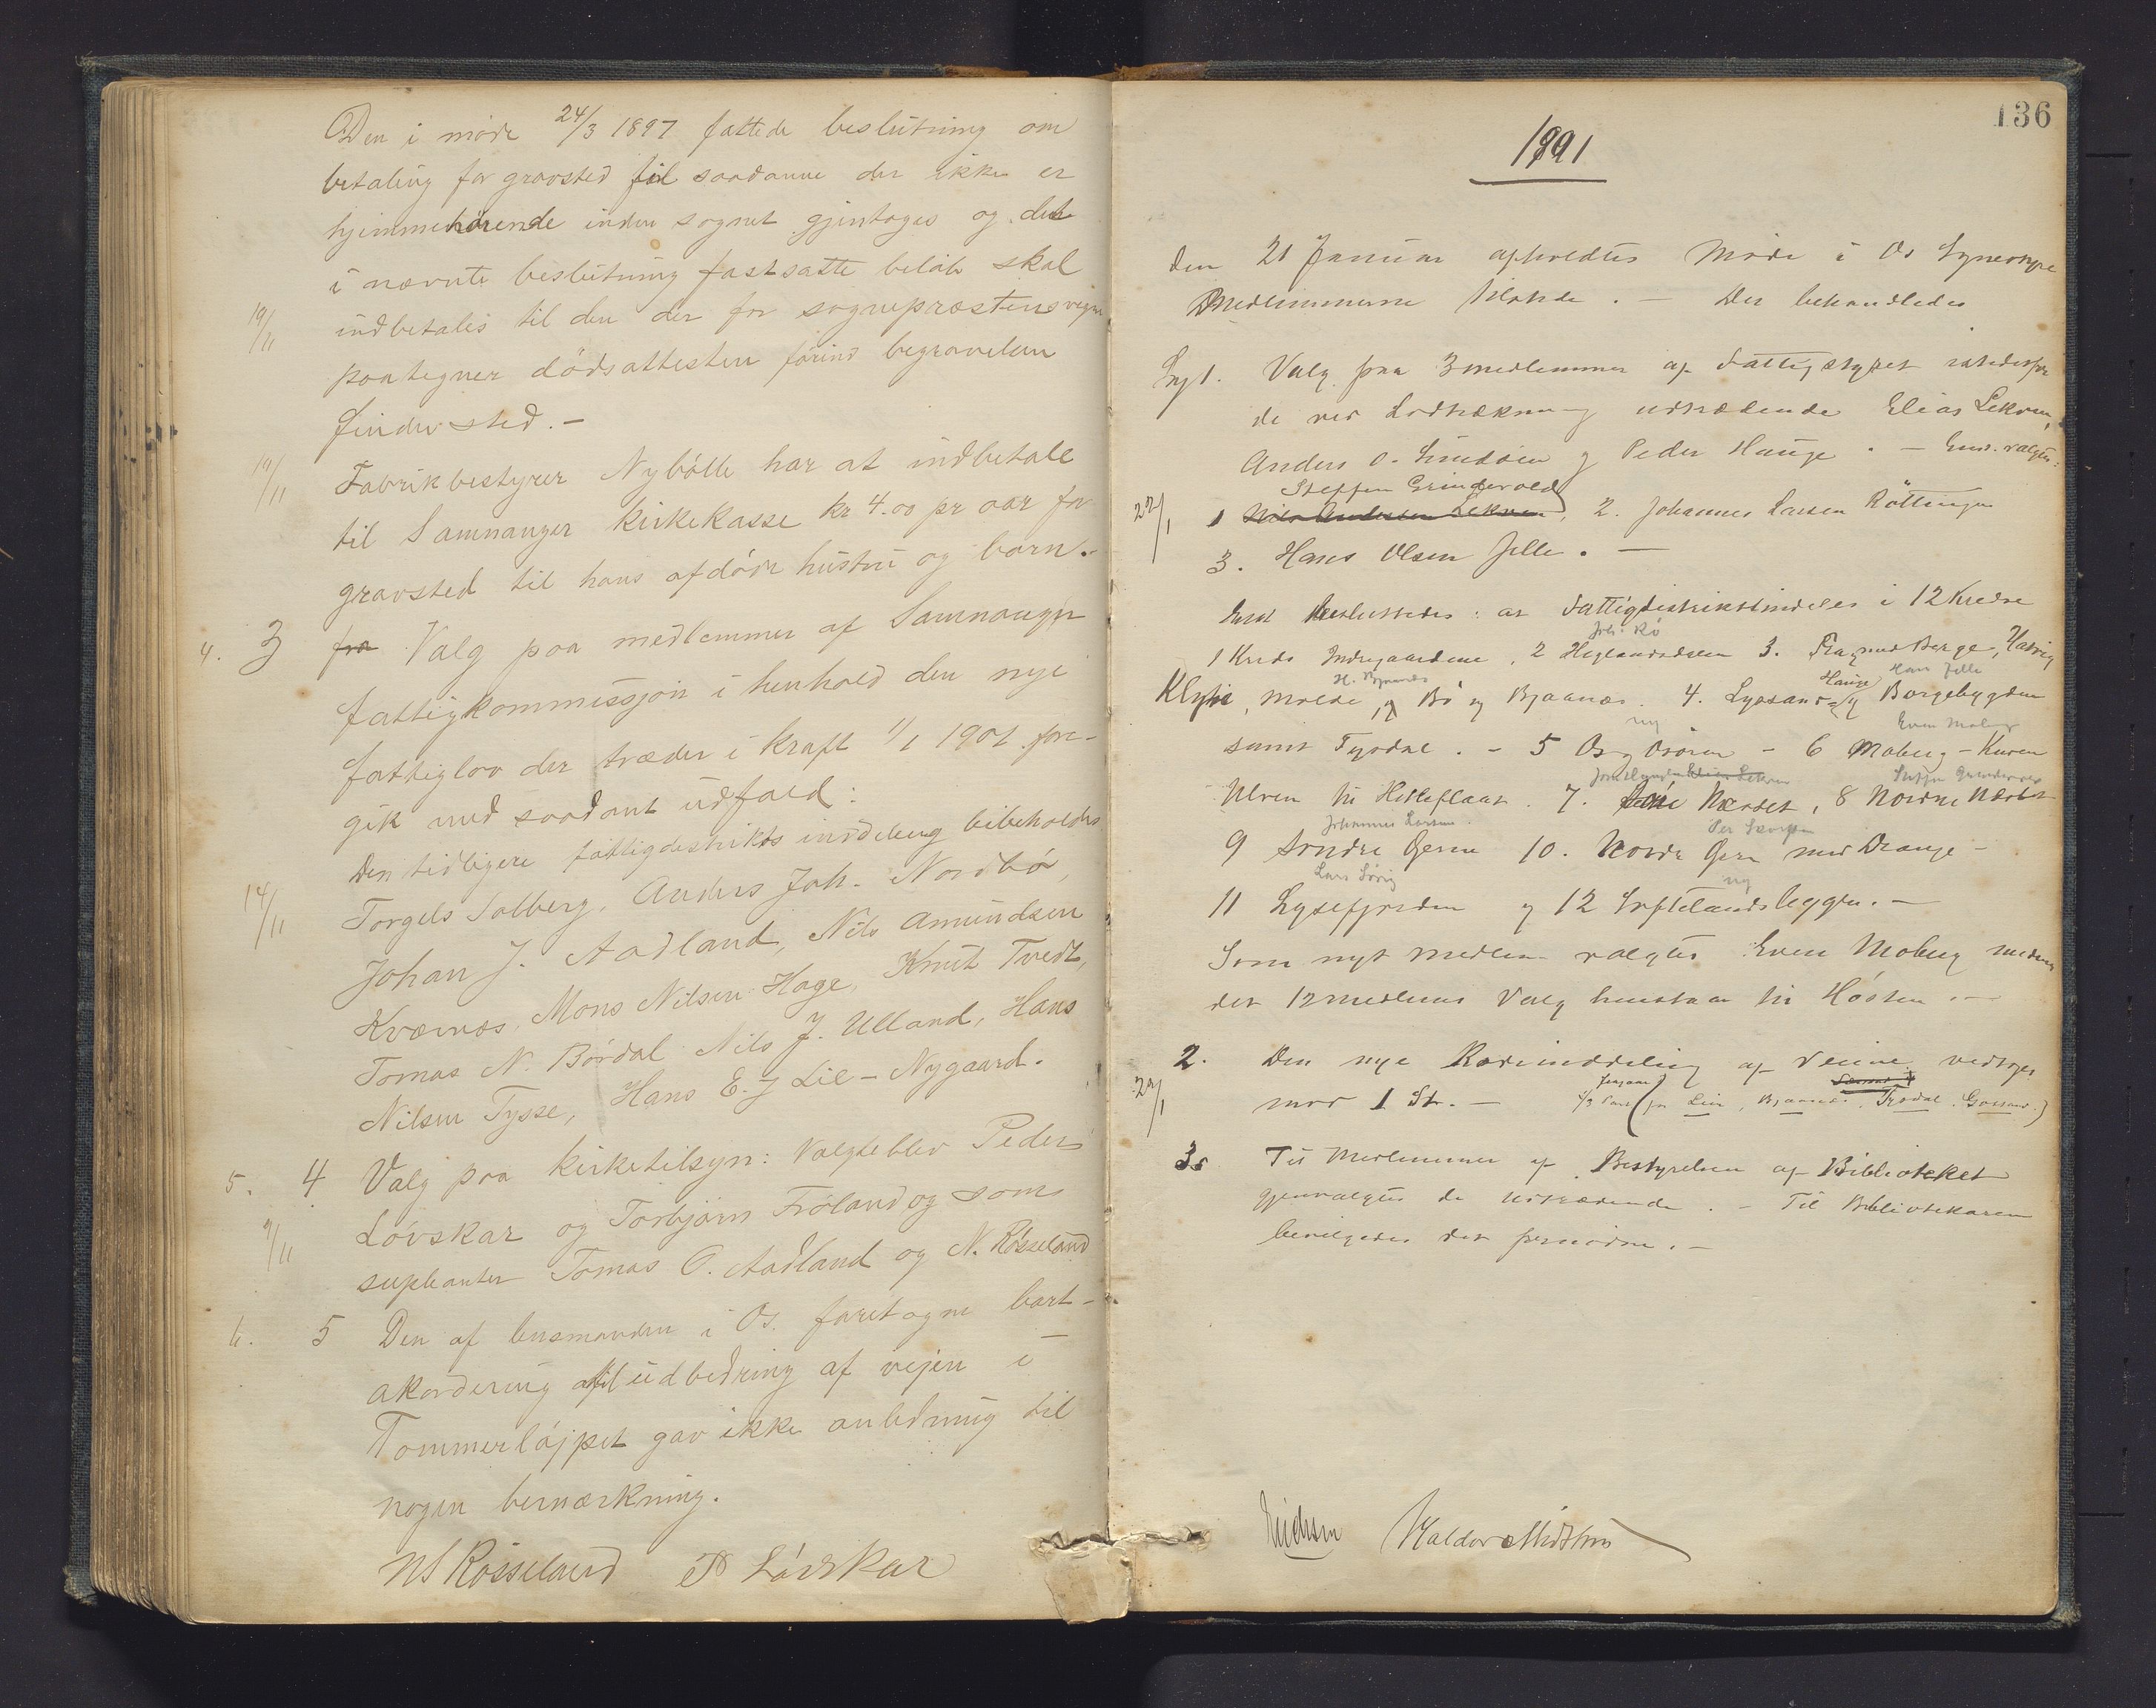 Den i møde 24/3 1897 fattede beslutning om
betaling for gravsted til saadanne der ikke er
hjemmehørende inden sognet gjentages og det
i nævnte beslutning fastsatte beløb skal
19/11 indbetales til den der for sognepræstens vegne
paategner dødsattesten førind begravelsen
finder sted.-
19/11 Fabrikbestyrer Nybølle har at indbetale
til Samnanger kirkekasse kr 4.00 pr aar for
gravsted til hans afdøde hustru og barn.-
4. 3 fra Valg paa medlemmer af Samnanger
fattigkommissjon i henhold den nye
fattiglov der træder i kraft 1/1 1901 fore-
gik med saadant udfald:
Den tidligere fattigdistrikts inddeling bibeholdes
14/11 Torgels Solberg, Anders Joh. Nordbø,
Johan J. Aadland, Nils Amundsen
Kværnæs, Mons Nilsen Hage, Knut Tvedt,
Tomas N. Børdal Nils J. Ulland, Hans
Nilsen Tysse, Hans E. J Lil-Nygaard.
5. 4 Valg paa kirketilsyn: Valgte blev Peder
Løvskar og Torbjørn Frøland og som
9/11 supleanter Tomas O. Aadland og N. Røsseland
6. 5 Den af lensmanden i Os. foretagne bort-
akordering af til udbedring af vejen i
Tømmerløjpet gav ikke anledning til
nogen bemærkning.
NS Røsseland P Løvskar
136
1891
Den 21 Januar afholdtes Møde i Os
Medlemmerne tilstede. — Der behandledes
Sag 1. Valg paa 3 medlemmer af Fattigstyret istedetfor
de ved Lodtrækning udtrædende Elias Lekven,
Anders O. Lundøen og Peder Hauge. —
Steffen Grindevold
22/1 1 Nils Andersen Lekven, 2. Johannes Larsen Røttingen
3. Hans Olsen Jelle. —
besluttedes: at Fattigdistriktinddeles i 12 Kredse
Joh: Rø
1 Kreds Indregaardene, 2 Heglandsdalen 3. med Berge, Hatvig
H. Bjaanæs Hauge Hans Jelle
Klyve, Molde, og Bø og Bjaanæs. 4. Lyssand og Borgebygden
ny Even Moberg
samt Tysdal. - 5 Os og Osøren - 6 Moberg - Kuven
Elias Lekven Steffen Grindevold
Ulven til Hetleflaat. 7. Næset, 8 Nordre Næset
Johannes Larsen Per Skorpen
9 Søndre Gerne 10. Nordre Gern med Drange -
Lars Søvig ny
11 Lysefjorden og 12 Søftelandsleggen. —
Som nyt medlem valgtes Even Moberg medens
det 12 medlems Valg henstaar til Høsten. —
2. Den nye Rodeinddeling af Veiene vedtoges
27/1 mod 1 St. — (for Lien, Bjaanæs, Tysdal, )
3. Til Medlemmer af Bestyrelsen af Biblioteket
gjenvalgtes de udtrædende. - Til Bibliotekaren
bevilgedes det —
Haldor Midthus